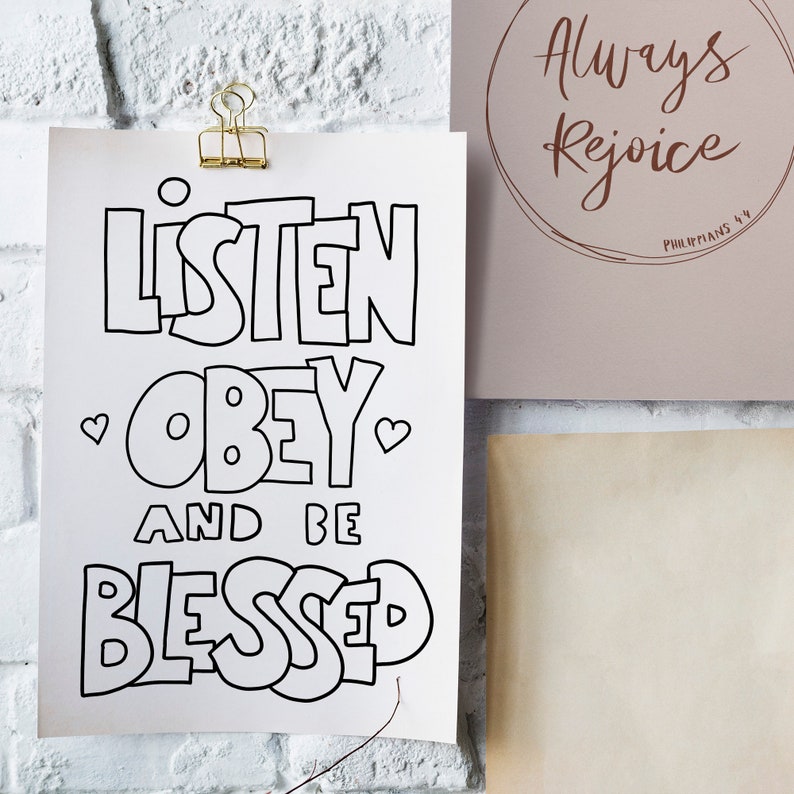 LiSTEN
OBEY
AND BE
BLESSED
Always
Rejoice
PHILIPPIANS 4:4